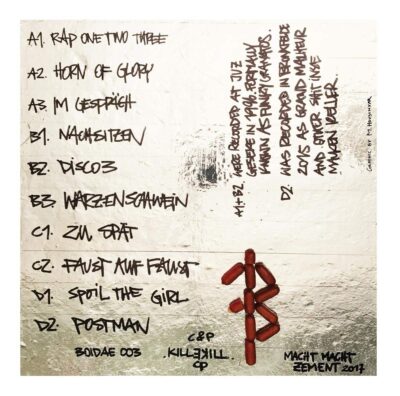 A1. RAP ONE TWO THREE
A2. HORN OF GLORY
A3. IM GESPRÄCH
B1. NACHSITZEN
B2. DISCO 3
B3. WARZENSCHWEIN
C1. ZU SPÄT
C2. FAUST AUF FAUST
D1. SPOIL THE GIRL
D2. POSTMAN
BOIDAE 003
C&P
.KILLEKILL.
MACHT MACHT
ZEMENT 2017
A1+B2 WERE RECORDED AT JUZ
IN 1986 FORMALLY
KNOWN AS FUNKY
D2 WAS RECORDED IN
2015 AS GRAND MALHEUR
AND OTHER SHIT
KELLER.
BY M.